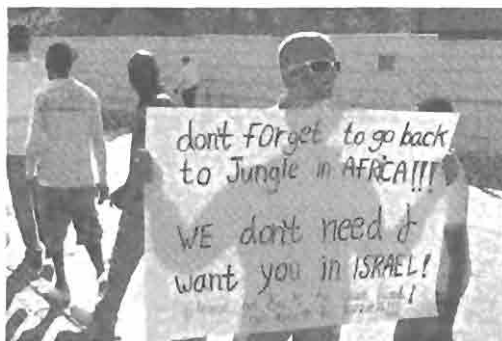 don't FORget to go back
to Jungle in AFRICA!!!
WE don't need &
want you in ISRAEL!